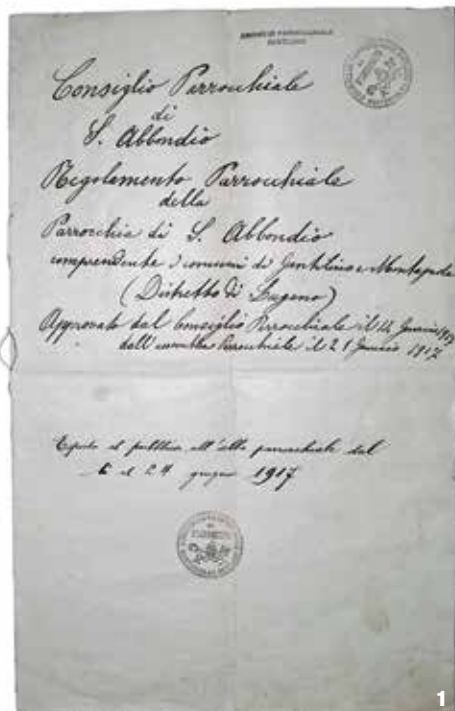 Consiglio Parrochiale
di
S. Abbondio
Regolamento Parrochiale
della
Parrocchia di S. Abbondio
comprendente i comuni di Gentilino e Montagnola
(Distretto di Lugano)
Approvato dal Consiglio Parrochiale il 14 Gennaio 1917
dall'assemblea Parrochiale il 21 Gennaio 1917
Esposto al pubblico all'albo parrochiale dal
al 24 giugno 1917
1